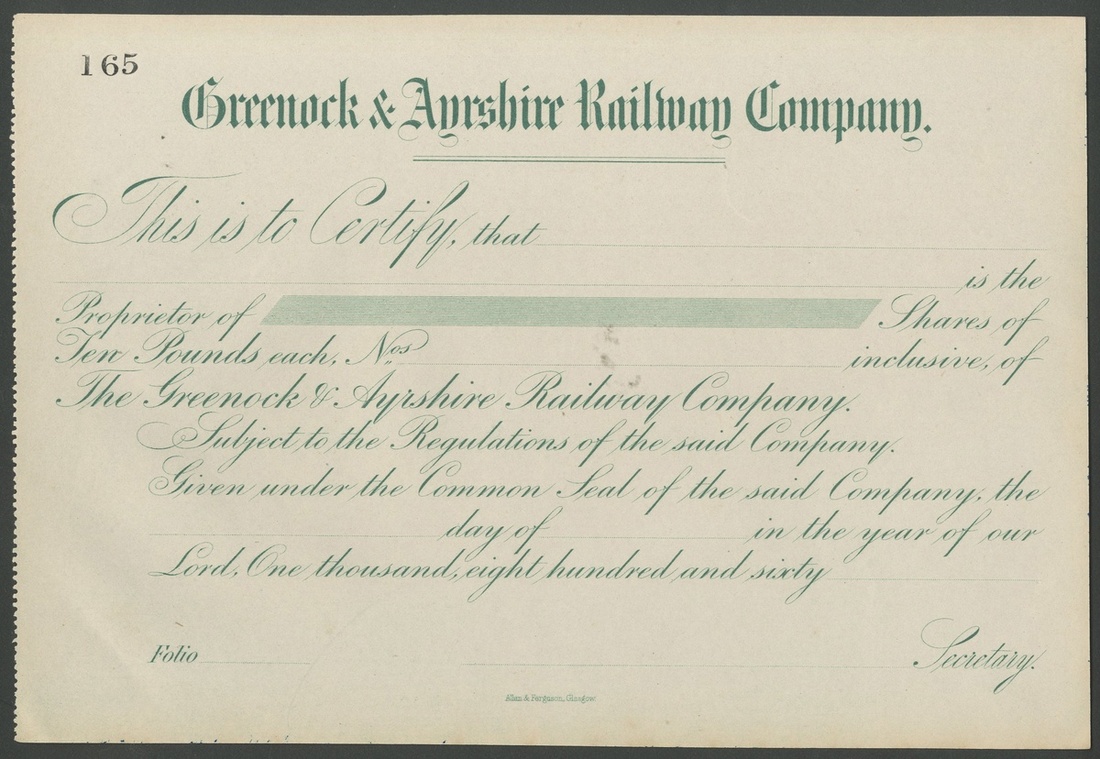 165
Greenock & Ayrshire Railway Company.
This is to Certify, that
is the
Proprietor of Shares of
Ten Pounds each, Nos. inclusive, of
The Greenock & Ayrshire Railway Company.
Subject to the Regulations of the said Company.
Given under the Common Seal of the said Company, the
day of in the year of our
Lord, One thousand, eight hundred and sixty
Folio Secretary.
& Ferguson, Glasgow